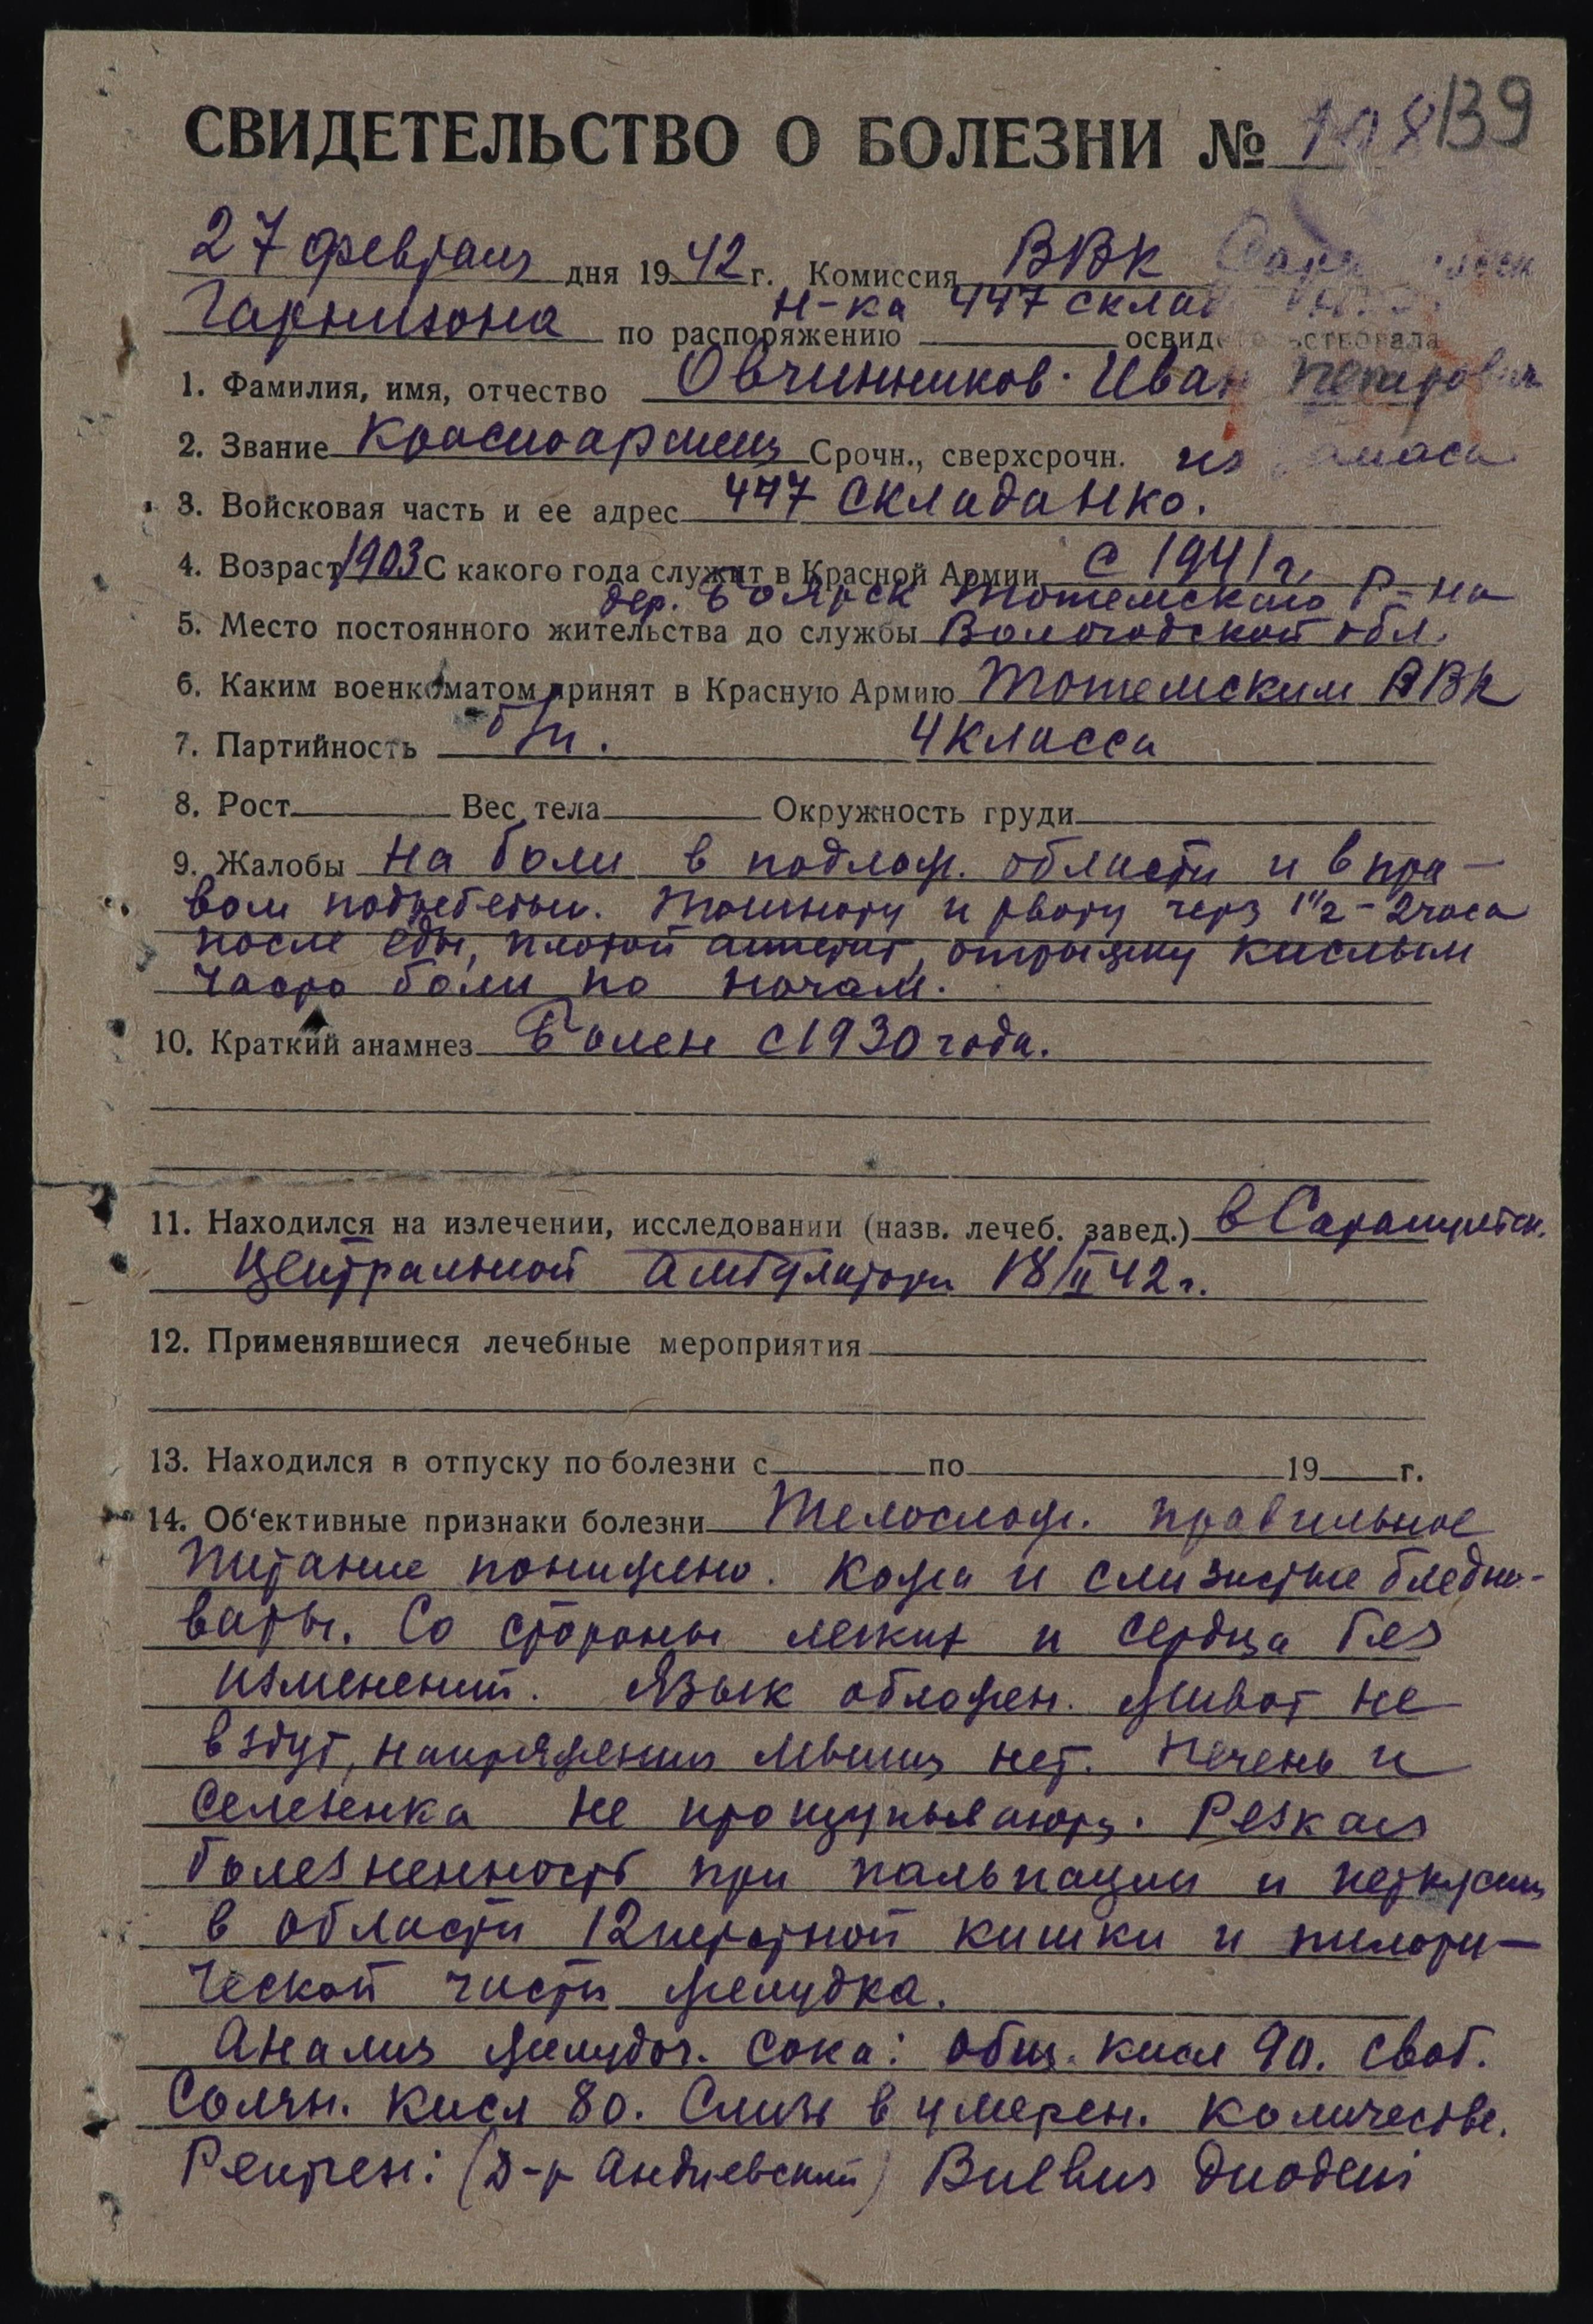 СВИДЕТЕЛЬСТВО О БОЛЕЗНИ № 108 139
27 февраля дня 1942 г. Комиссия ВВК
Гарнизона по распоряжению н-ка 447 склад освидетельствовала
1. Фамилия, имя, отчество Овчинников Иван Петрович
2. Звание Красноармеец Срочн., сверхсрочн. из запаса
3. Войсковая часть и ее адрес 447 склада НКО.
4. Возраст 1903 С какого года служит в Красной Армии с 1941 г.
дер. Боярск Тотемского р-на
5. Место постоянного жительства до службы Вологодской обл.
6. Каким военкоматом принят в Красную Армию Тотемским РВК
7. Партийность б/п. 4 класса
8. Рост Вес тела Окружность груди
9. Жалобы на боли в подлож. области и в пра-
вом подреберьи. Тошноту и рвоту через 1 1/2 - 2 часа
после еды, плохой аппетит, отрыжку кислым
часто боли по ночам.
10. Краткий анамнез Болен с 1930 года.
11. Находился на излечении, исследовании (назв. лечеб. завед.) в
Центральной амбулатории 18/II 42 г.
12. Применявшиеся лечебные мероприятия
13. Находился в отпуску по болезни с по 19 г.
14. Об'ективные признаки болезни Телослож. правильное
питание понижено. Кожа и слизистые бледно-
ваты. Со стороны легких и сердца без
изменений. Язык обложен. Живот не
вздут, напряжения мышц нет. Печень и
селезенка не прощупываются. Резкая
болезненность при пальпации и перкуссии
в области 12перстной кишки и пилори-
ческой части желудка.
Анализ желудоч. сока: общ. кисл 90. своб.
солян. кисл 80. Слизь в умерен. количестве.
Рентген: (Д-р Андриевский) Bulbus duodeni